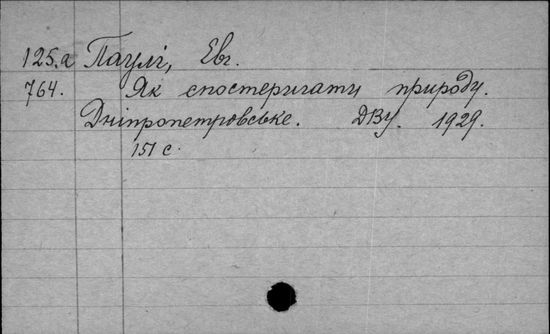 125.a Паулі, Евг.
764. Як спостеригати природу.
Дніпропетровське. ДВУ. 1929.
151 с.